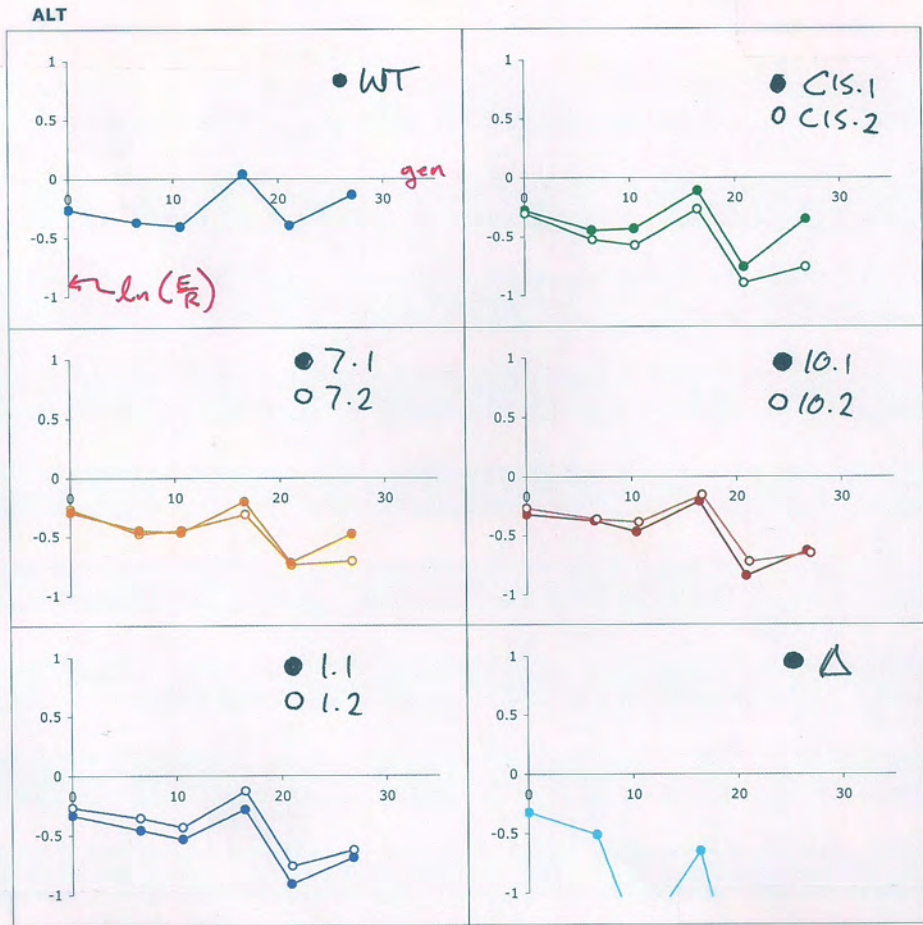 ALT
1
0.5
0
-0.5
-1
0 10 20 30
WT
gen
ln (E/R)
1
0.5
0
-0.5
-1
0 10 20 30
CIS.1
CIS.2
1
0.5
0
-0.5
-1
0 10 20 30
7.1
7.2
1
0.5
0
-0.5
-1
0 10 20 30
10.1
10.2
1
0.5
0
-0.5
-1
0 10 20 30
1.1
1.2
1
0.5
0
-0.5
-1
0 10 20 30
Δ